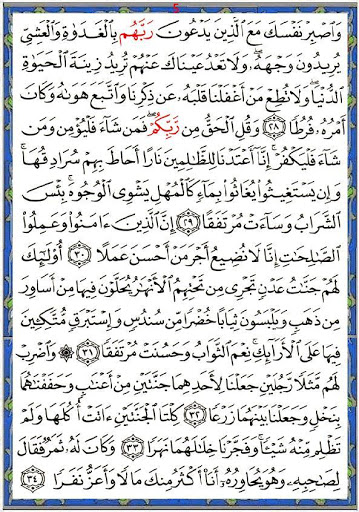 5
وَٱصۡبِرۡ نَفۡسَكَ مَعَ ٱلَّذِينَ يَدۡعُونَ رَبَّهُم بِٱلۡغَدَوٰةِ وَٱلۡعَشِيِّ
يُرِيدُونَ وَجۡهَهُۥۖ وَلَا تَعۡدُ عَيۡنَاكَ عَنۡهُمۡ تُرِيدُ زِينَةَ ٱلۡحَيَوٰةِ
ٱلدُّنۡيَاۖ وَلَا تُطِعۡ مَنۡ أَغۡفَلۡنَا قَلۡبَهُۥ عَن ذِكۡرِنَا وَٱتَّبَعَ هَوَىٰهُ وَكَانَ
أَمۡرُهُۥ فُرُطٗا ٢٨ وَقُلِ ٱلۡحَقُّ مِن رَّبِّكُمۡۖ فَمَن شَآءَ فَلۡيُؤۡمِن وَمَن
شَآءَ فَلۡيَكۡفُرۡۚ إِنَّآ أَعۡتَدۡنَا لِلظَّٰلِمِينَ نَارًا أَحَاطَ بِهِمۡ سُرَادِقُهَاۚ
وَإِن يَسۡتَغِيثُواْ يُغَاثُواْ بِمَآءٖ كَٱلۡمُهۡلِ يَشۡوِي ٱلۡوُجُوهَۚ بِئۡسَ
ٱلشَّرَابُ وَسَآءَتۡ مُرۡتَفَقًا ٢٩ إِنَّ ٱلَّذِينَ ءَامَنُواْ وَعَمِلُواْ
ٱلصَّٰلِحَٰتِ إِنَّا لَا نُضِيعُ أَجۡرَ مَنۡ أَحۡسَنَ عَمَلًا ٣٠ أُوْلَٰٓئِكَ
لَهُمۡ جَنَّٰتُ عَدۡنٖ تَجۡرِي مِن تَحۡتِهِمُ ٱلۡأَنۡهَٰرُ يُحَلَّوۡنَ فِيهَا مِنۡ أَسَاوِرَ
مِن ذَهَبٖ وَيَلۡبَسُونَ ثِيَابًا خُضۡرٗا مِّن سُندُسٖ وَإِسۡتَبۡرَقٖ مُّتَّكِـِٔينَ
فِيهَا عَلَى ٱلۡأَرَآئِكِۚ نِعۡمَ ٱلثَّوَابُ وَحَسُنَتۡ مُرۡتَفَقٗا ٣١ ۞ وَٱضۡرِبۡ
لَهُم مَّثَلٗا رَّجُلَيۡنِ جَعَلۡنَا لِأَحَدِهِمَا جَنَّتَيۡنِ مِنۡ أَعۡنَٰبٖ وَحَفَفۡنَٰهُمَا
بِنَخۡلٖ وَجَعَلۡنَا بَيۡنَهُمَا زَرۡعٗا ٣٢ كِلۡتَا ٱلۡجَنَّتَيۡنِ ءَاتَتۡ أُكُلَهَا وَلَمۡ
تَظۡلِم مِّنۡهُ شَيۡـٔٗاۚ وَفَجَّرۡنَا خِلَٰلَهُمَا نَهَرٗا ٣٣ وَكَانَ لَهُۥ ثَمَرٞ فَقَالَ
لِصَٰحِبِهِۦ وَهُوَ يُحَاوِرُهُۥٓ أَنَا۠ أَكۡثَرُ مِنكَ مَالٗا وَأَعَزُّ نَفَرٗا ٣٤